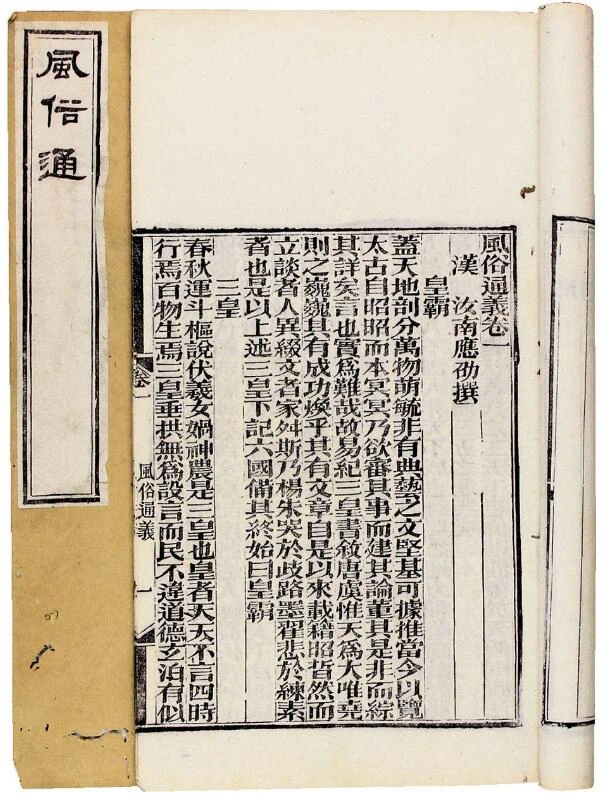 風俗通
風俗通義卷一
漢 汝南應劭撰
皇霸
蓋天地剖分萬物萌毓非有典藝之文堅基可據推當今以覽
太古自昭昭而本冥冥乃欲審其事而建其論董其是非而綜
其詳矣言也實爲難哉故易紀三皇書敘唐虞惟天爲大唯堯
則之巍巍其有成功煥乎其有文章自是以來載籍昭晢然而
立談者人異綴文者家舛斯乃楊朱哭於歧路墨翟悲於練素
者也是以上述三皇下記六國備其終始曰皇霸
三皇
春秋運斗樞說伏羲女媧神農是三皇也皇者天天不言四時
行焉百物生焉三皇垂拱無爲設言而民不違道德玄泊有似
卷一
風俗通義
一